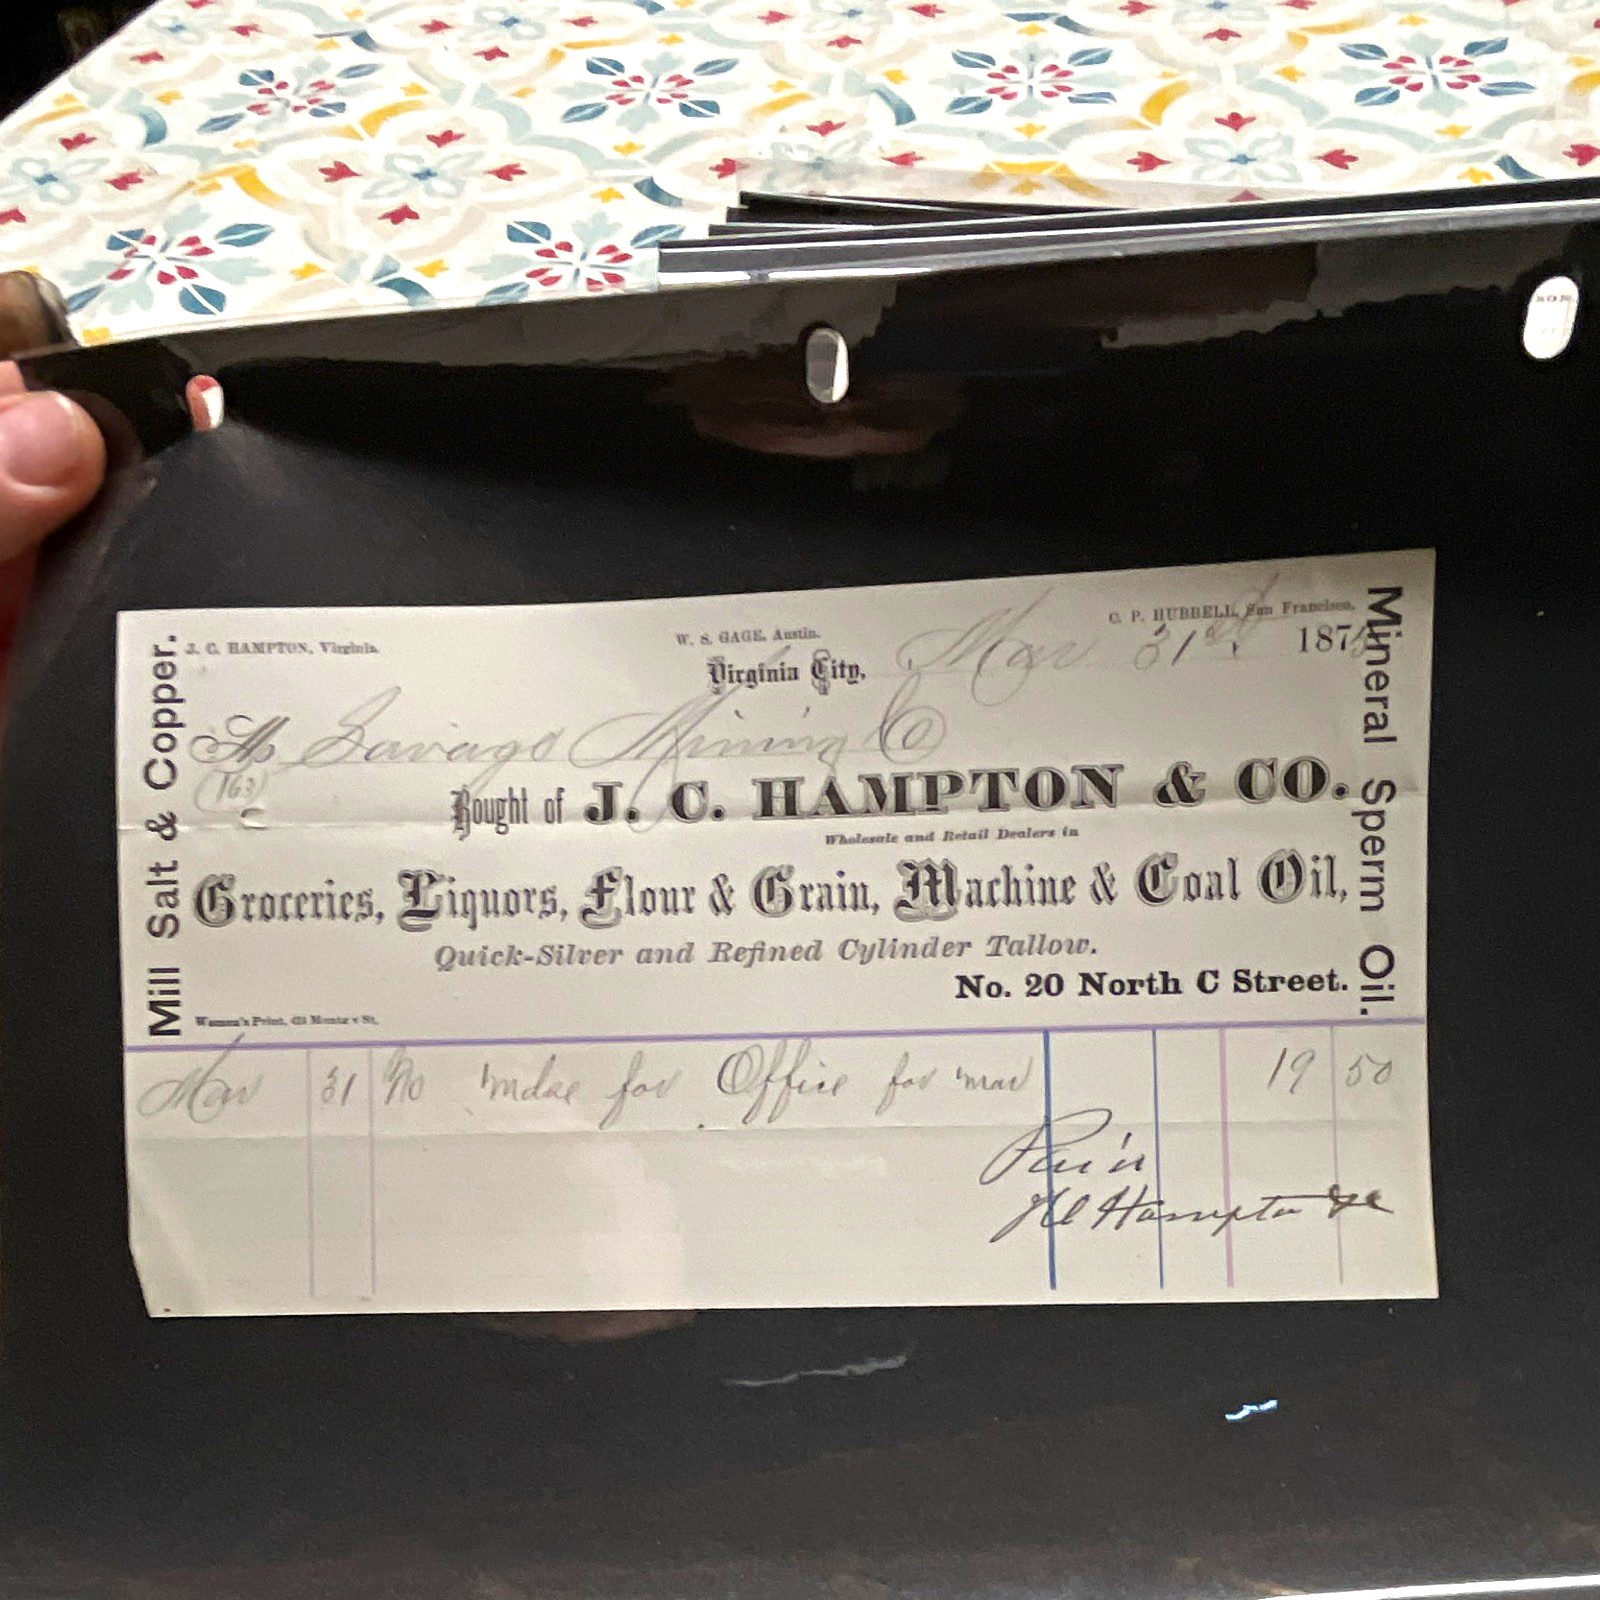 J. C. HAMPTON, Virginia.
W. S. GAGE, Austin.
C. P. HUBBELL, San Francisco.
Virginia City, Mar 31st 1875
Savage Mining Co
(163)
Bought of J. C. HAMPTON & CO.
Wholesale and Retail Dealers in
Groceries, Liquors, Flour & Grain, Machine & Coal Oil,
Quick-Silver and Refined Cylinder Tallow.
No. 20 North C Street.
Women's Print, St.
Mill Salt & Copper.
Mineral Sperm Oil.
Mar 31 mdse for Office for mar 19 50
J C Hampton & Co